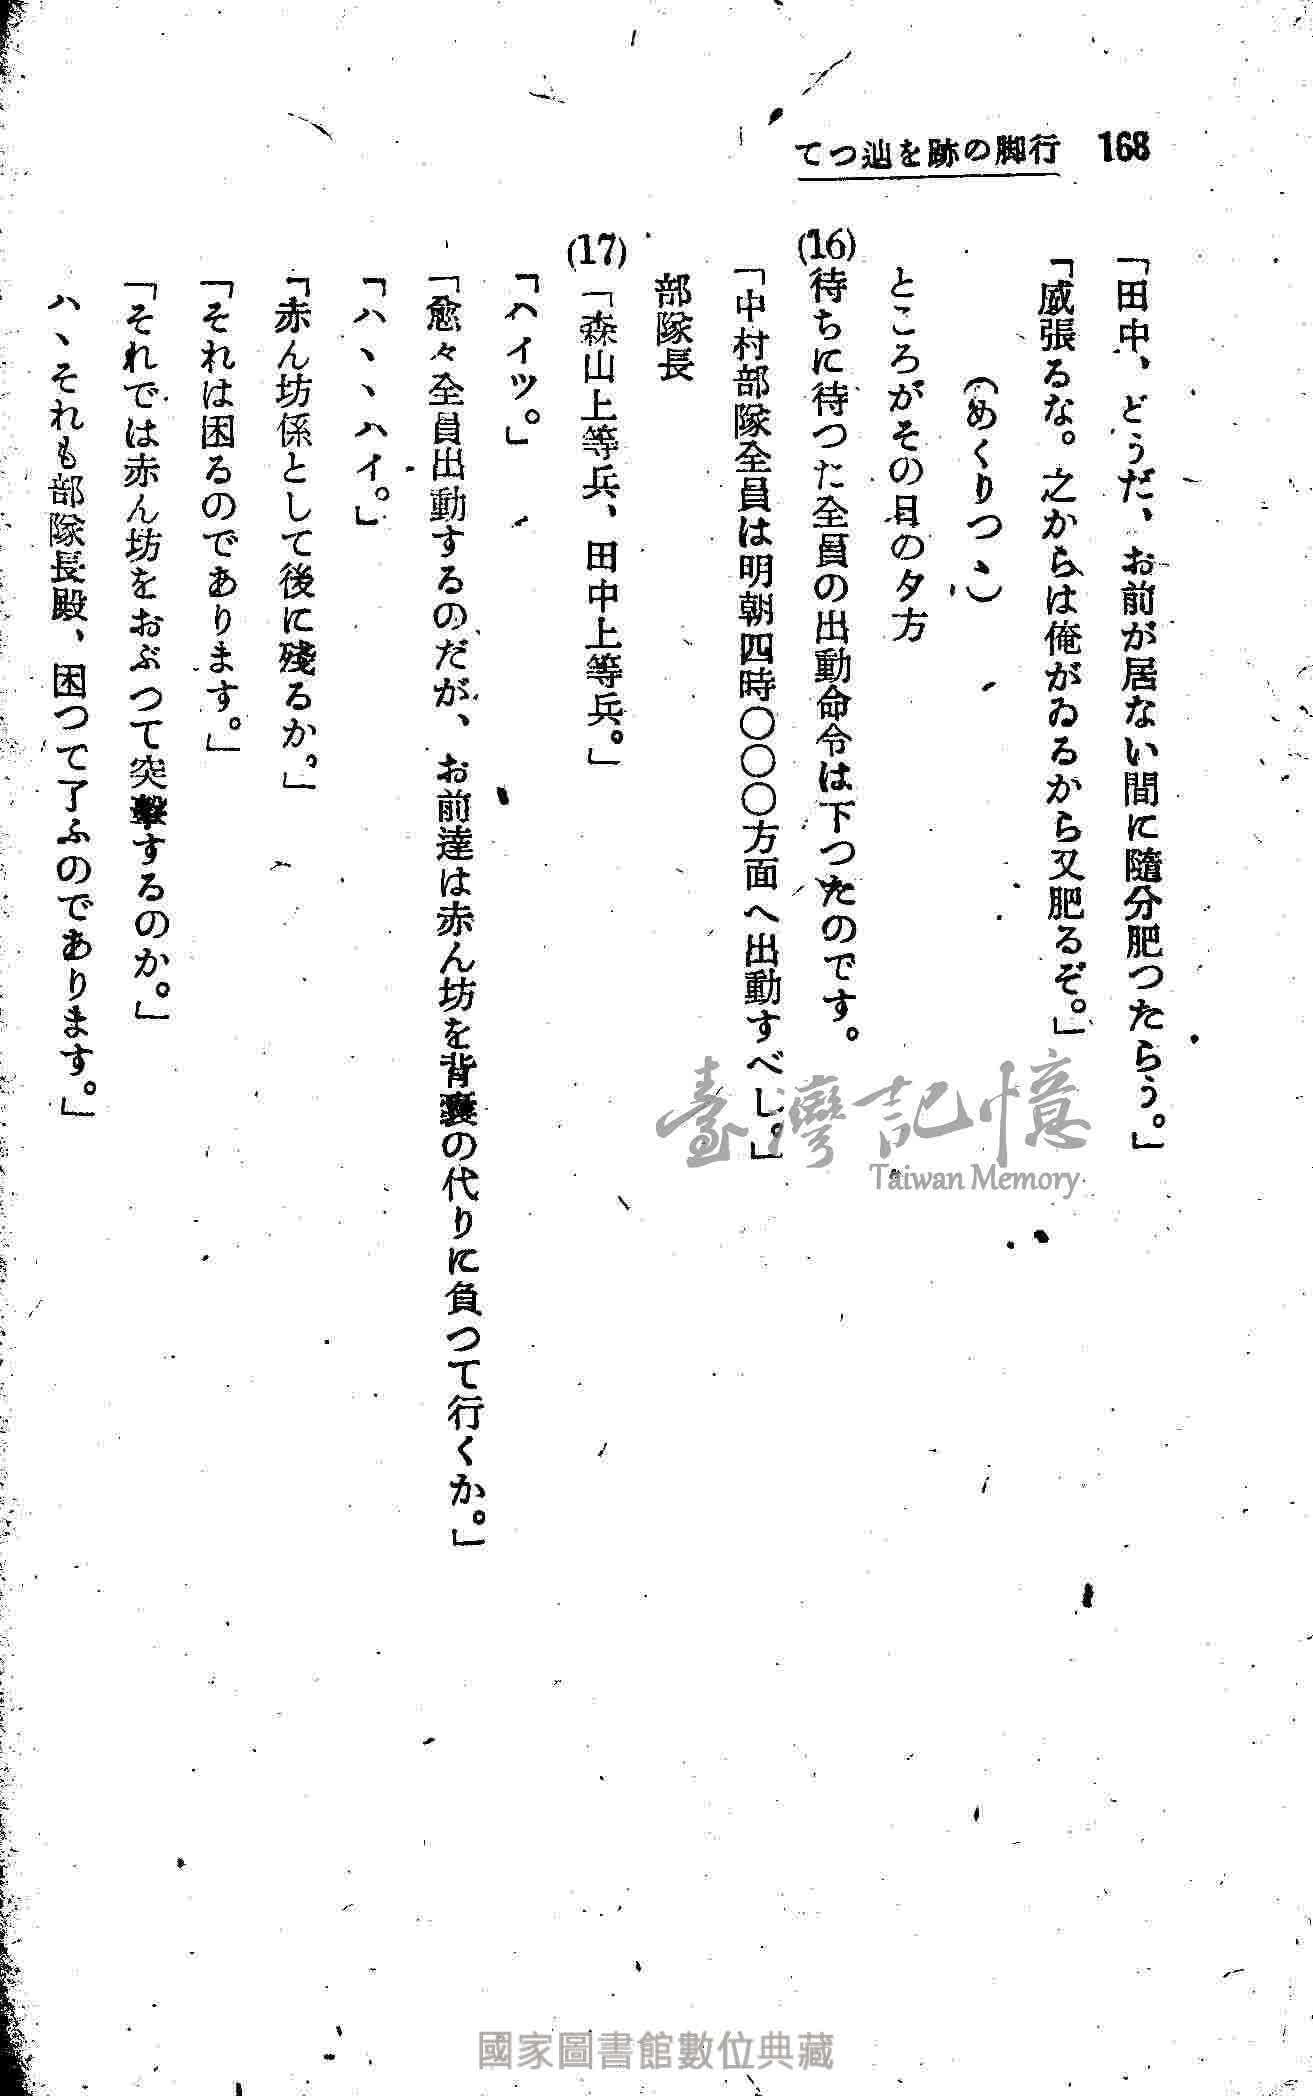 168 行脚の跡を辿つて
「田中、どうだ、お前が居ない間に隨分肥つたらう。」
「威張るな。之からは俺がゐるから又肥るぞ。」
(めくりつゝ)
ところがその日の夕方
(16)待ちに待つた全員の出動命令は下つたのです。
「中村部隊全員は明朝四時〇〇〇方面へ出動すべし。」
部隊長
(17)「森山上等兵、田中上等兵。」
「ヘイツ。」
「愈々全員出動するのだが、お前達は赤ん坊を背嚢の代りに負つて行くか。」
「ハ、、ハイ。」
「赤ん坊係として後に殘るか。」
「それは困るのであります。」
「それでは赤ん坊をおぶつて突擊するのか。」
ハ、それも部隊長殿、困つて了ふのであります。」
臺灣記憶
Taiwan Memory
國家圖書館數位典藏